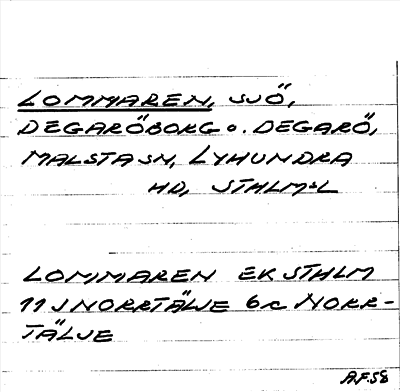 LOMMAREN, SJÖ,
DEGARÖBORG o. DEGARÖ,
MALSTA SN, LYHUNDRA
HD, STHLMS L
LOMMAREN EK STHLM
11 J NORRTÄLJE 6c NORR-
TÄLJE
A.F. 58